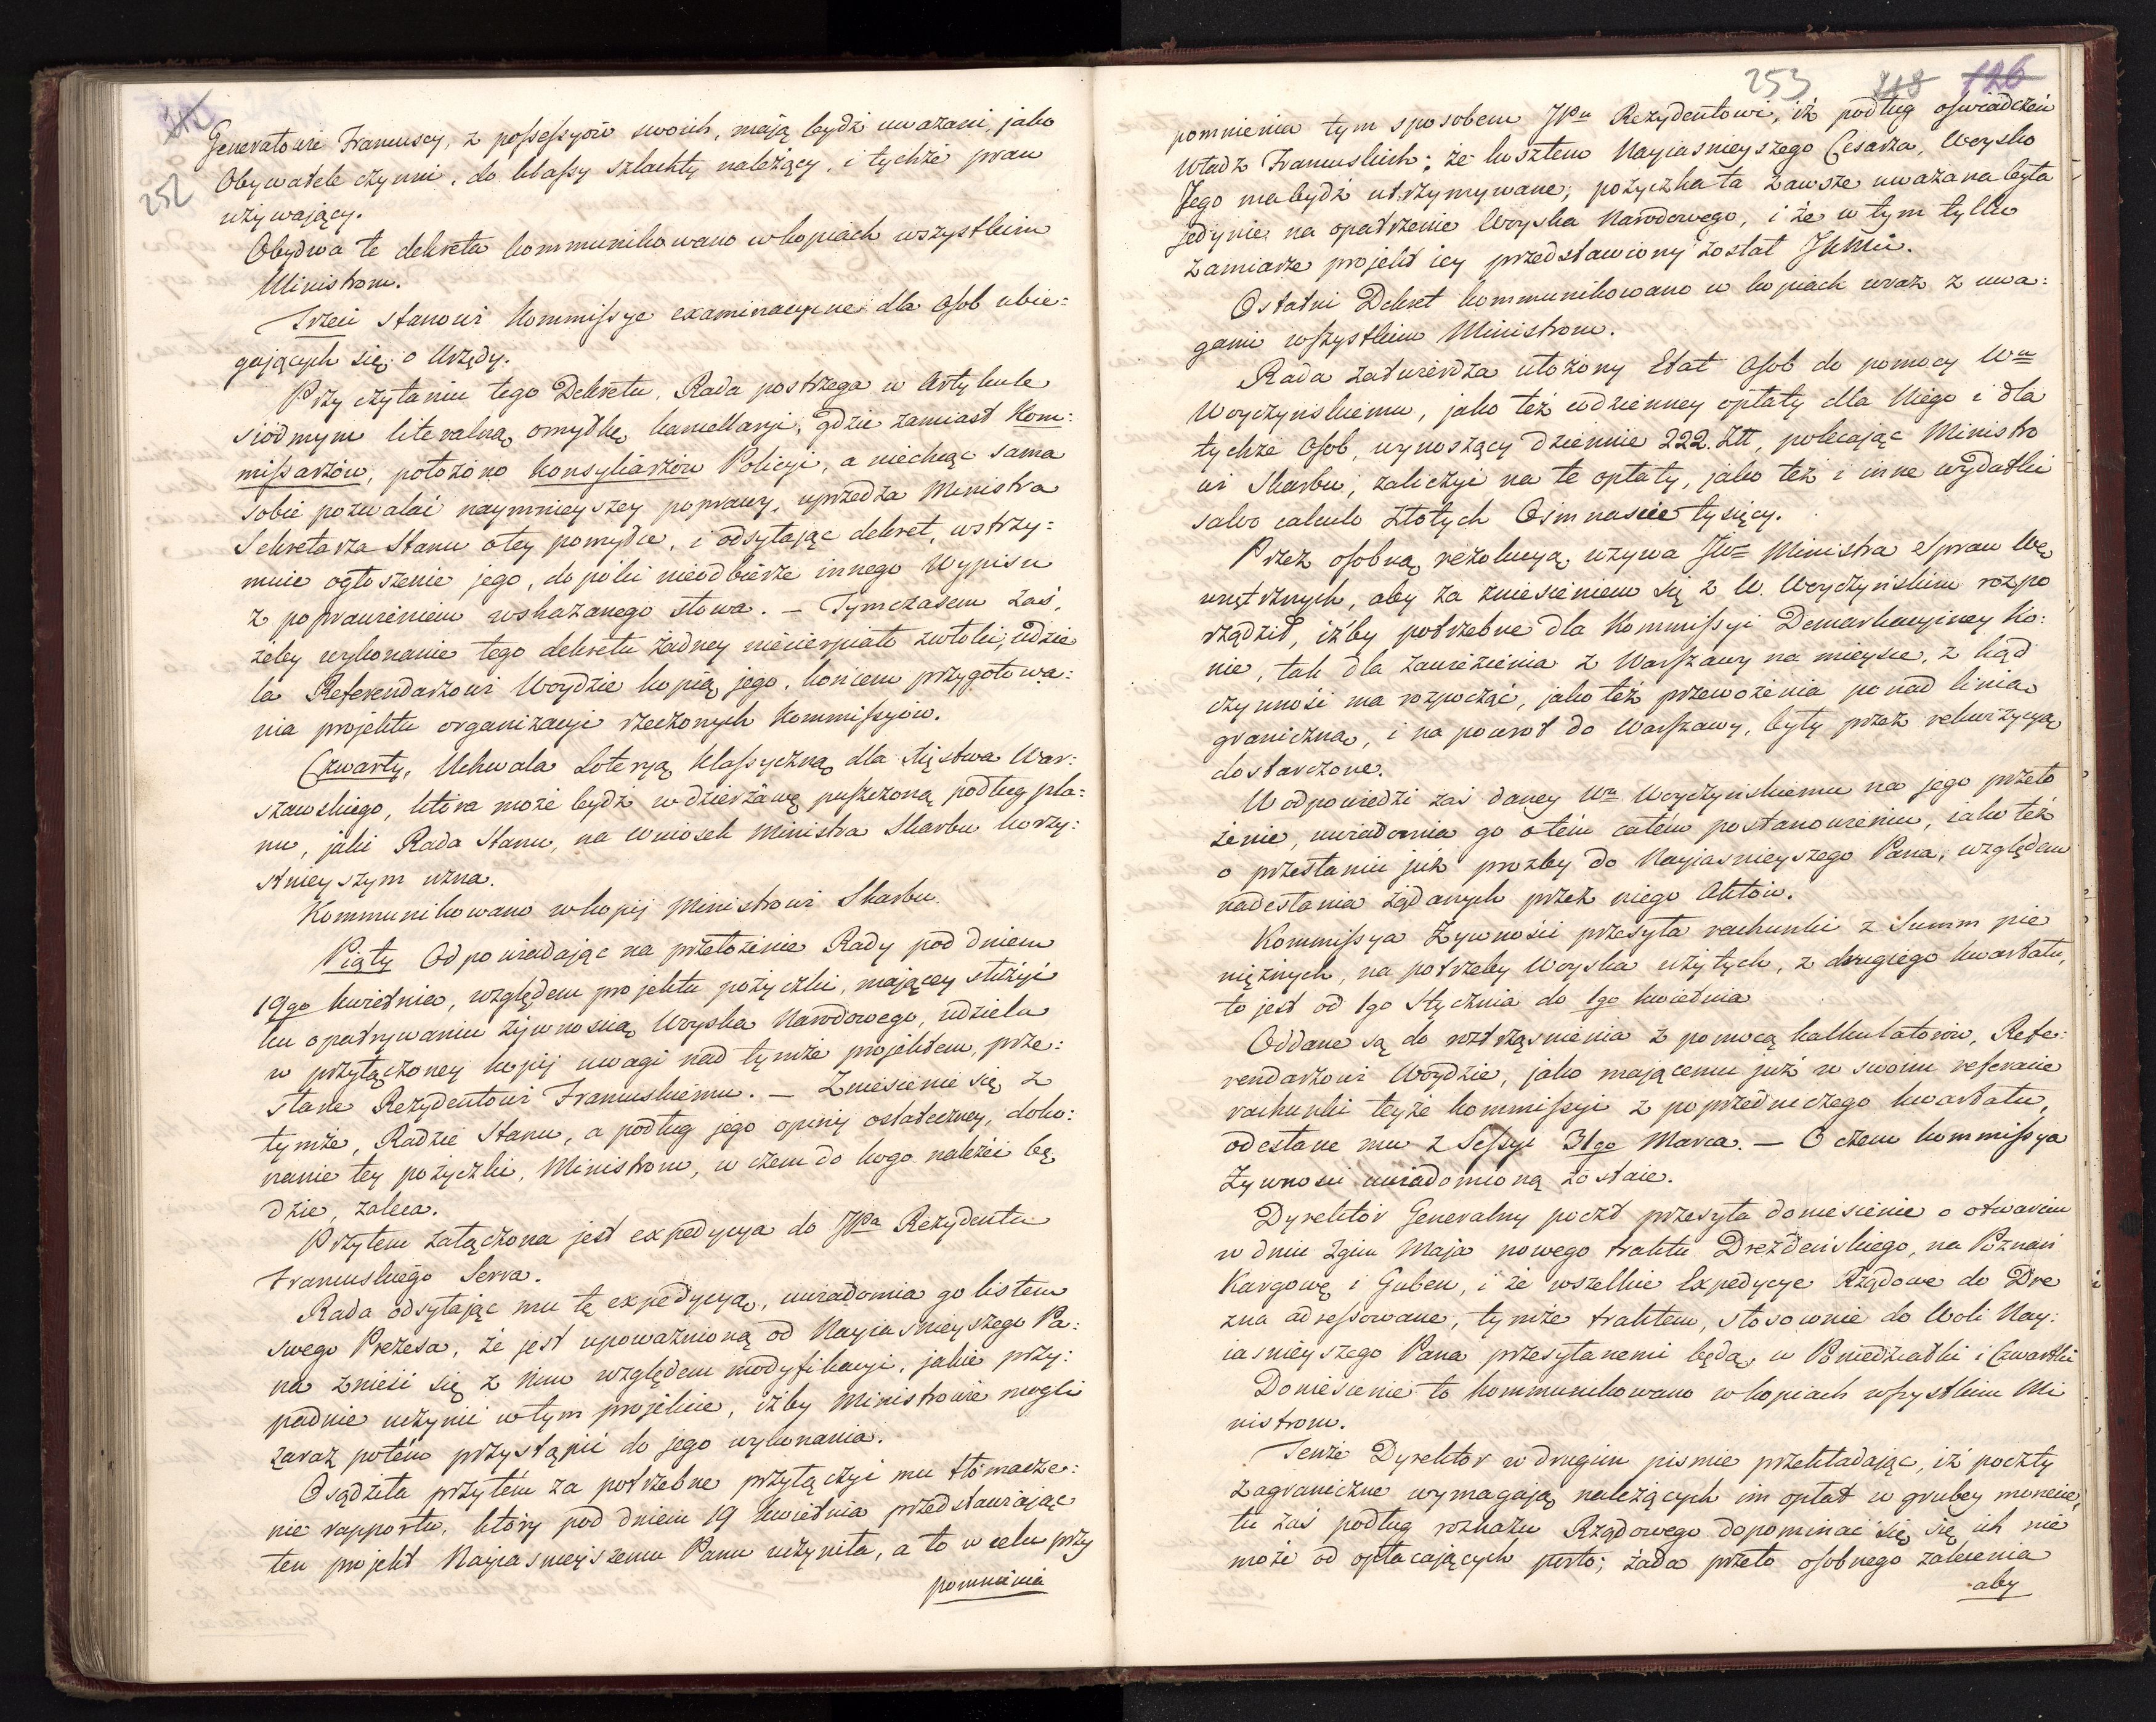 252
Generałowie Francuscy, z possessyów swoich, mają bydź uważani, jako
Obywatele czynni, do klassy szlachty należący, i tychże praw
używający.
Obydwa te dekreta kommunikowano w kopiach wszystkim
Ministrom.
Trzeci stanowi Kommissye examinacyine dla Osob ubie:
gających się o Urzędy.
Przy czytaniu tego Dekretu, Rada postrzega w Artykule
siódmym literalną omyłkę kancellaryi, gdzie zamiast Kom:
missarzów, położono Konsyliarzów Policyi, a niechcąc sama
sobie pozwalać naymnieyszey poprawy, uprzedza Ministra
Sekretarza Stanu o tey pomyłce, i odsyłając dekret, wstrzy:
muie ogłoszenie jego, dopóki nieodbierze innego Wypisu
z poprawieniem wskazanego słowa. – Tymczasem zaś,
żeby wykonanie tego dekretu żadney niecierpiało zwłoki, udzie
la Referendarzowi Woydzie kopią jego, końcem przygotowa:
nia projektu organizacyi rzeczonych Kommissyów.
Czwarty, Uchwala Loteryą klassyczną dla Xięstwa War:
szawskiego, która może bydź w dzierżawę puszczoną podług pla:
nu, jaki Rada Stanu, na wniosek Ministra Skarbu korzy:
stnieyszym uzna.
Kommunikowano w kopij Ministrowi Skarbu.
Piąty Odpowiadając na przełożenie Rady pod dniem
19go kwietnia, względem projektu pożyczki, mającey służyć
ku opatrywaniu żywnością Woyska Narodowego, udziela
w przyłączoney kopij uwagi nad tymże projektem, prze:
słane Rezydentowi Francuskiemu. – Zniesienie się z
tymże, Radzie Stanu, a podług jego opinij ostateczney, doko:
nanie tey pożyczki, Ministrom, w czem do kogo należeć bę
dzie, zaleca.
Przytem załączona jest expedycya do JPa Rezydenta
Francuskiego Serra.
Rada odsyłając mu tę expedycyą, uwiadomia go listem
swego Prezesa, że jest upoważnioną od Nayiaśnieyszego Pa:
na znieść się z Nim względem modyfikacyi, jakie przy:
padnie uczynić w tym projekcie, iżby Ministrowie mogli
zaraz potém przystąpić do jego wykonania.
Osądziła przytém za potrzebne przyłączyć mu tłómacze:
nie rapportu, który pod dniem 19 kwietnia przedstawiając
ten projekt Nayiaśnieyszemu Panu uczyniła, a to w celu przy
pomnienia
253 118 126
pomnienia tym sposobem JPu Rezydentowi, iż podług oświadczeń
Władz Francuskich: że kosztem Nayiaśnieyszego Cesarza, Woysko
Jego ma bydź utrzymywane, pożyczka ta zawsze uważana była
jedynie na opatrzenie Woyska Narodowego, i że w tym tylko
zamiarze projekt iey przedstawiony został JKMci.
Ostatni Dekret kommunikowano w kopiach wraz z uwa:
gami wszystkim Ministrom.
Rada zatwierdza ułożony Etat Osob do pomocy Wu
Woyczyńskiemu, jako też codzienney opłaty dla Niego i dla
tychże Osob, wynoszący dziennie 222. Złł, polecając Ministro
wi Skarbu, zaliczyć na te opłaty, jako też i inne wydatki
salvo calculo złotych Ośmnaście tysięcy.
Przez osobną rezolucyą wzywa JWo Ministra Spraw We
wnętrznych, aby za zniesieniem się z W. Woyczyńskim rozpo
rządził, iżby potrzebne dla Kommissyi Demarkacyiney Ko:
nie, tak dla zawiezienia z Warszawy na mieysce, z kąd
czynność ma rozpocząć, jako też przewożenia ponad linią
graniczną, i na powrót do Warszawy, były przez rekwizycyą
dostarczone.
W odpowiedzi zaś daney Wu Woyczyńskiemu na jego przeło
żenie, uwiadomia go o tém całém postanowieniu, iako też
o przesłaniu już prozby do Nayiaśnieyszego Pana, względem
nadesłania żądanych przez niego Aktów.
Kommissya Żywności przesyła rachunki z Summ pie
niężnych, na potrzeby Woyska użytych, z drugiego kwartału,
to jest od 1go Stycznia do 1go kwietnia
Oddane są do roztrząśnienia z pomocą kalkulatorów, Refe:
rendarzowi Woydzie, jako mającemu już w swoim referacie
rachunki teyże kommissyi z poprzedniczego kwartału,
odesłane mu z Sessyi 31go Marca. – O czem kommissya
Żywności uwiadomioną zostaie.
Dyrektór Generalny poczt przesyła doniesienie o otwarciu
w dniu 2gim Maja nowego traktu Drezdeńskiego, na Poznań
Kargowę i Guben, i że wszelkie Expedycye Rządowe do Dre
zna adressowane, tymże traktem, stosownie do Woli Nay:
iaśnieyszego Pana przesyłanemi będą, w Poniedziałki i Czwartki
Doniesienie to kommunikowano w kopiach wszystkim Mi
nistrom.
Tenże Dyrektór w drugim piśmie przekładając, iż poczty
Zagraniczne wymagają należących im opłat w grubey monecie,
tu zaś podług rozkazu Rządowego dopominać się się ich nie
może od opłacających porto; żąda przeto osobnego zalecenia
aby